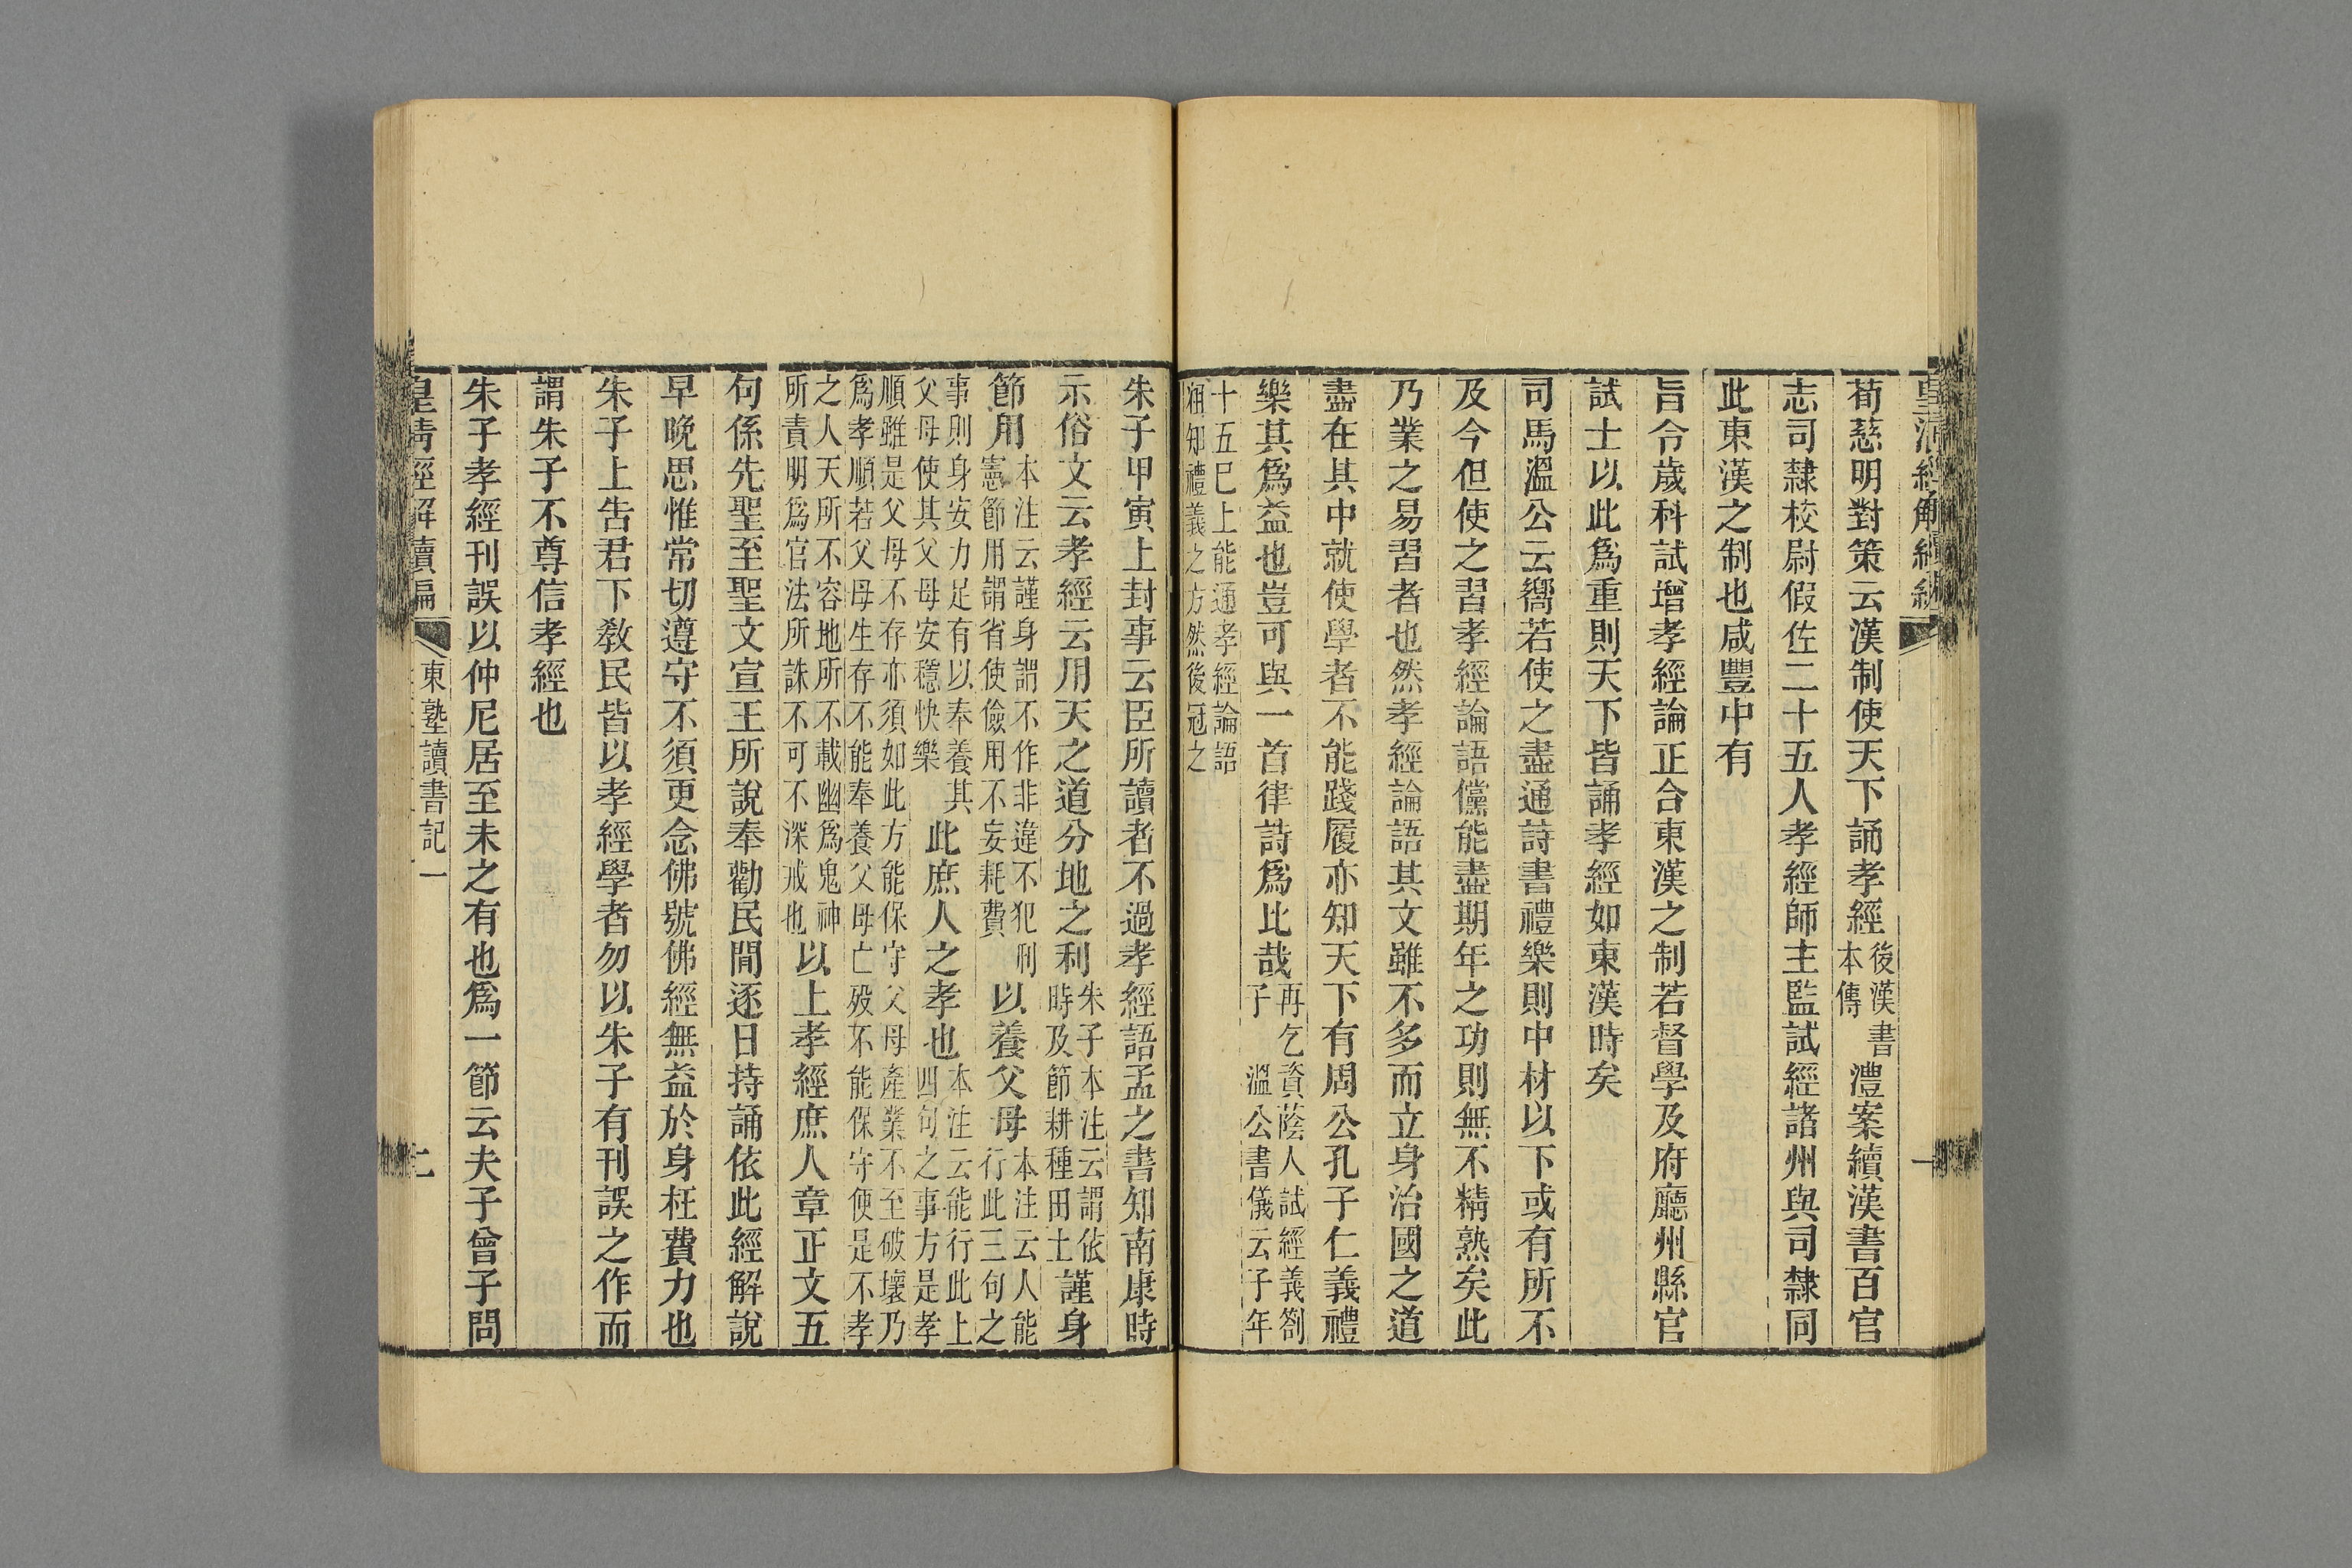 皇清經解續編
荀慈明對策云漢制使天下誦孝經後漢書本傳澧案續漢書百官
志司隸校尉假佐二十五人孝經師主監試經諸州與司隸同
此東漢之制也咸豐中有
旨令歲科試增孝經論正合東漢之制若督學及府廳州縣官
試士以此爲重則天下皆誦孝經如東漢時矣
司馬溫公云嚮若使之盡通詩書禮樂則中材以下或有所不
及今但使之習孝經論語儻能盡期年之功則無不精熟矣此
乃業之易習者也然孝經論語其文雖不多而立身治國之道
盡在其中就使學者不能踐履亦知天下有周公孔子仁義禮
樂其爲益也豈可與一首律詩爲比哉再乞資蔭人試經義劄子　溫公書儀云子年
十五巳上能通孝經論語
粗知禮義之方然後冠之
朱子甲寅上封事云臣所讀者不過孝經語孟之書知南康時
示俗文云孝經云用天之道分地之利朱子本注云謂依時及節耕種田土謹身
節用本注云謹身謂不作非違不犯刑憲節用謂省使儉用不妄耗費以養父母本注云人能行此三句之
事則身安力足有以奉養其父母使其父母安穩快樂此庶人之孝也本注云能行此上四句之事方是孝
順雖是父母不存亦須如此方能保守父母產業不至破壞乃
爲孝順若父母生存不能奉養父母亡歿不能保守便是不孝
之人天所不容地所不載幽爲鬼神所責明爲官法所誅不可不深戒也以上孝經庶人章正文五
句係先聖至聖文宣王所說奉勸民間逐日持誦依此經解說
早晚思惟常切遵守不須更念佛號佛經無益於身枉費力也
朱子上告君下教民皆以孝經學者勿以朱子有刊誤之作而
謂朱子不尊信孝經也
朱子孝經刊誤以仲尼居至未之有也爲一節云夫子曾子問
皇清經解續編　東塾讀書記一